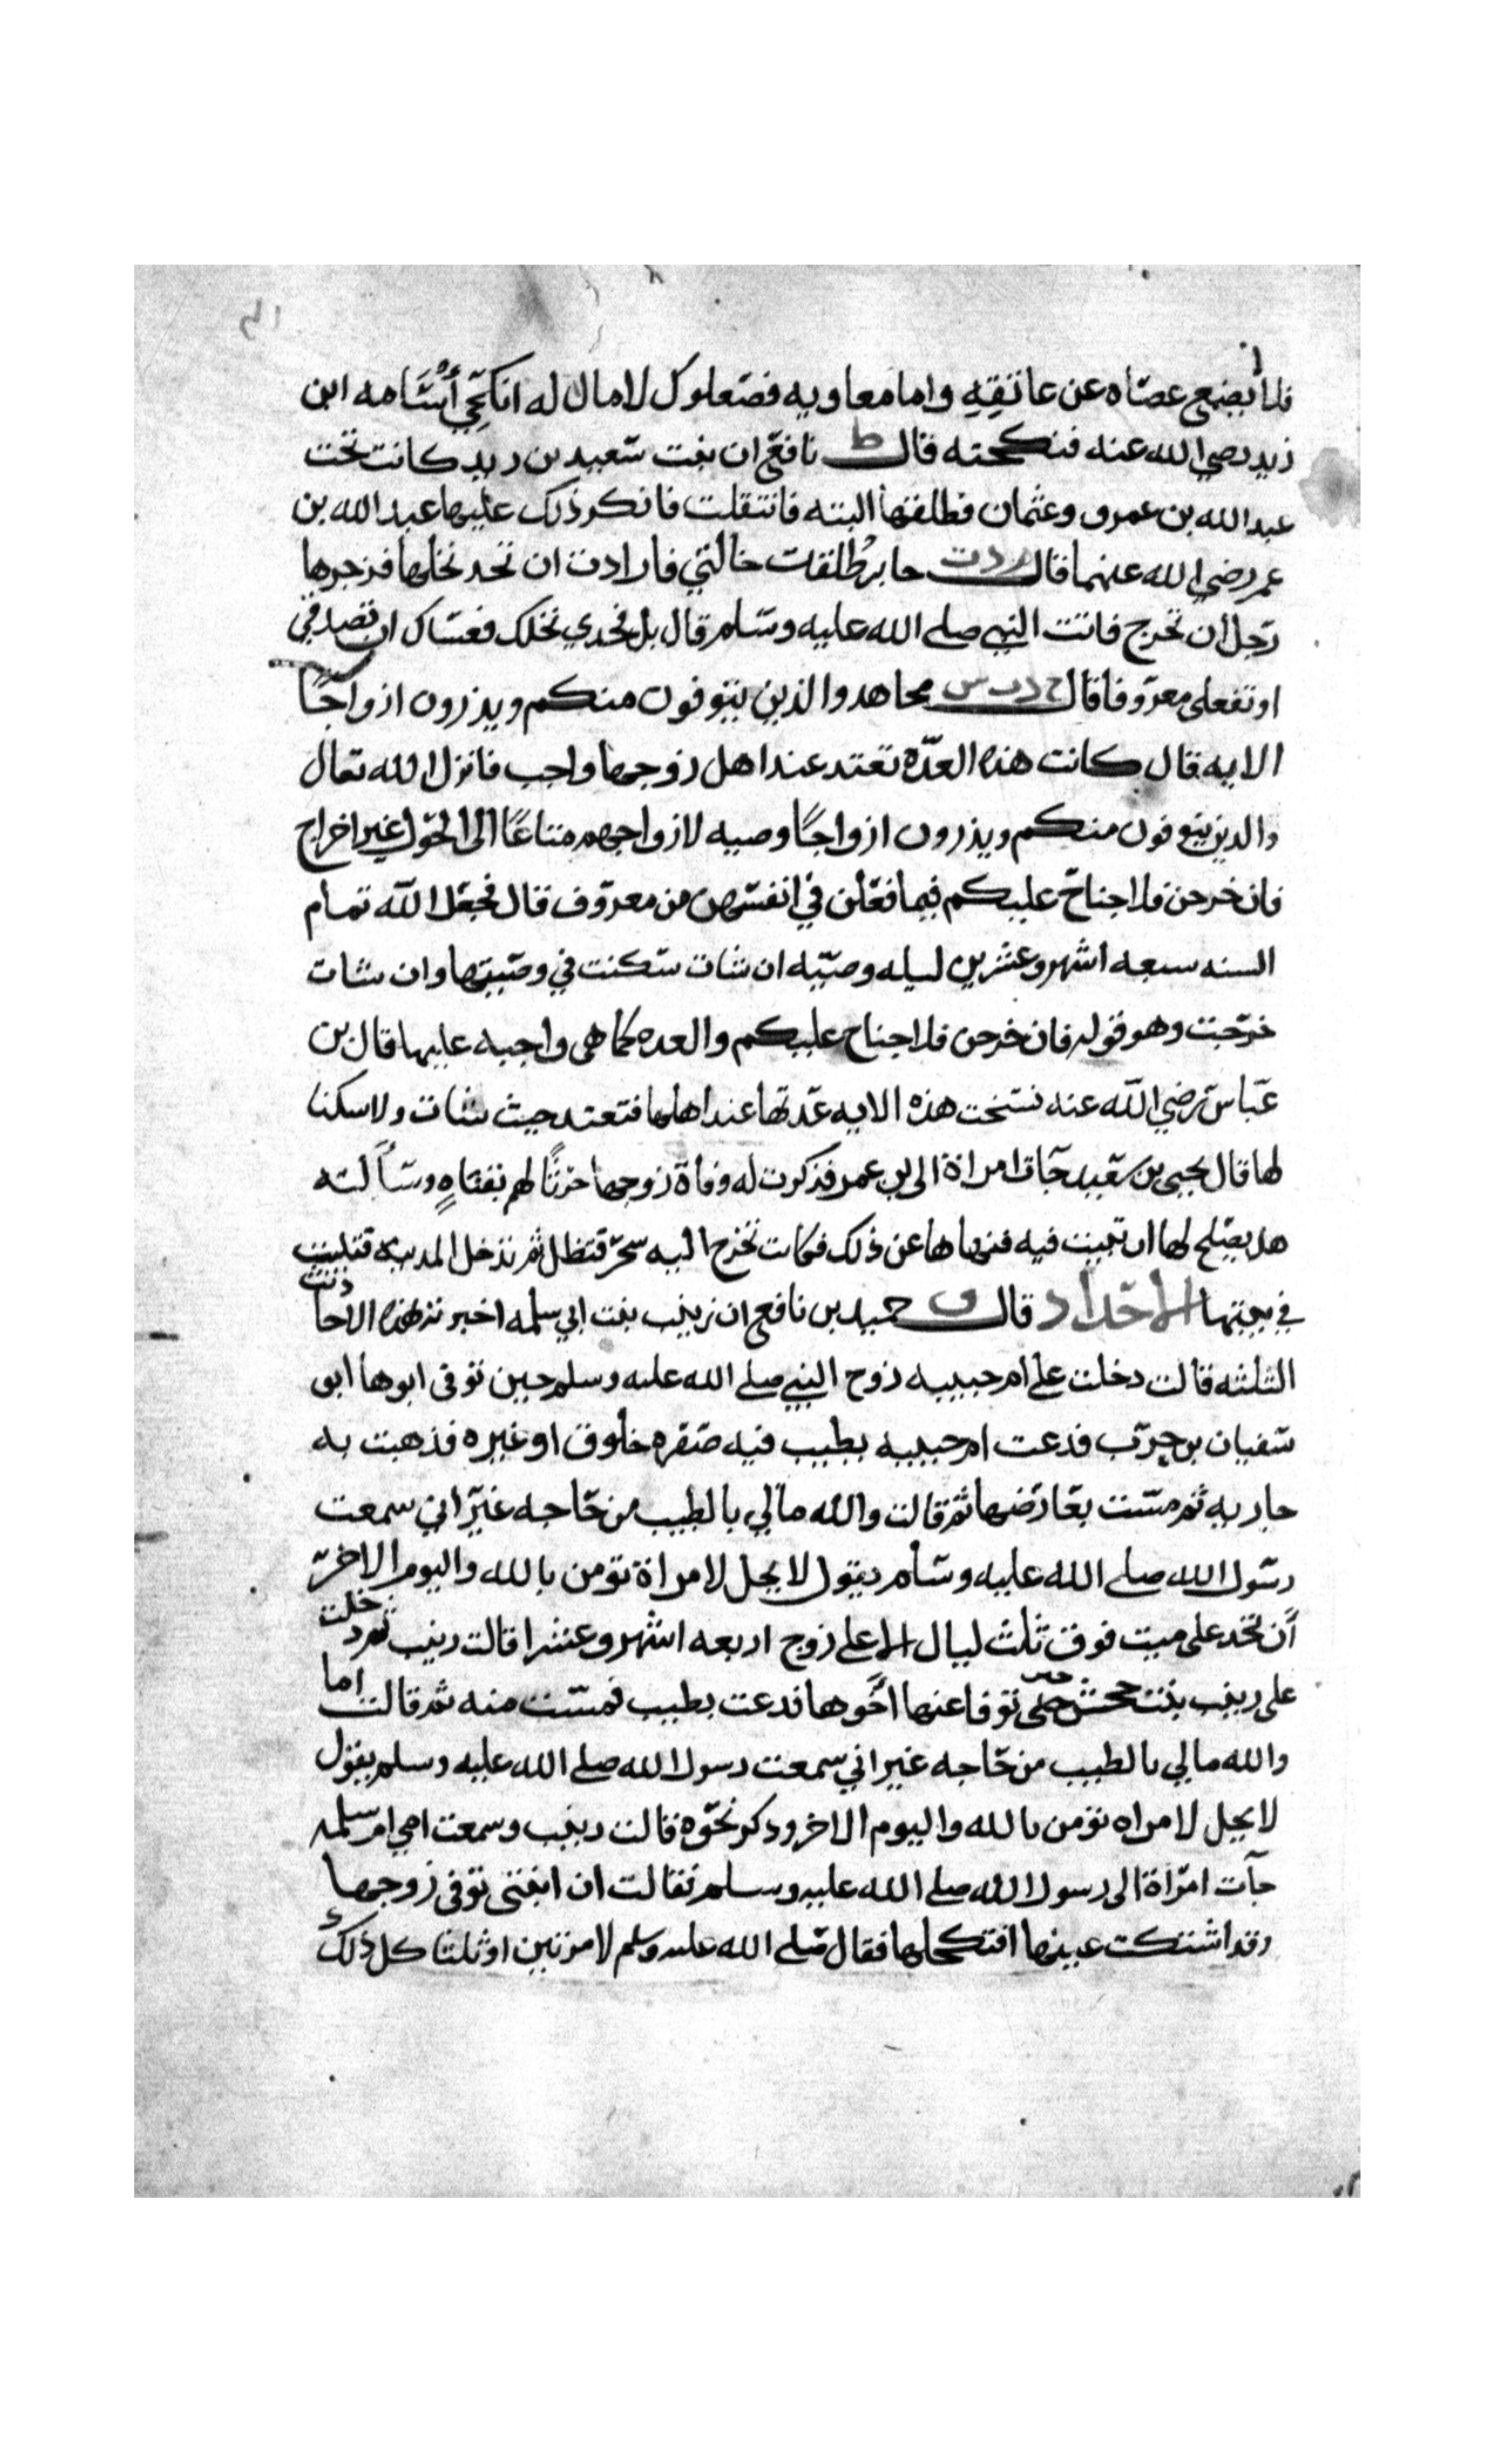 فلا يضع عصاه عن عاتقه واما معاويه فصعلوك لا مال له انكحي أسامه ابن
زيد رضي الله عنه فنكحته قال ط نافع ان بنت سعيد بن زيد كانت تحت
عبد الله بن عمرو وعثمان فطلقها البته فانتقلت فانكر ذلك عليها عبد الله بن
عمر رضي الله عنهما قال م د ت جابر طلقت خالتي فارادت ان تجد نخلها فزجرها
رجل ان تخرج فاتت النبي صلى الله عليه وسلم قال بل فجدي نخلك فعساك ان تصدقي
او تفعلى معروفا قال خ د ت س مجاهد والذين يتوفون منكم ويذرون ازواجًا
الايه قال كانت هذه العدّة تعتد عند اهل زوجها واجب فانزل الله تعالى
والذين يتوفون منكم ويذرون ازواجًا وصيه لازواجهم متاعًا الى الحول غير اخراج
فان خرجن فلا جناح عليكم فيما فعلن في انفسهن من معروف قال فجعل الله تمام
السنه سبعه اشهر وعشرين ليله وصيّه ان شات سكنت في وصيتها وان شات
خرجت وهو قوله فان خرجن فلا جناح عليكم والعده كما هي واجبه عليها قال بن
عباس رضي الله عنه نسخت هذه الايه عدتها عند اهلها فتعتد حيث شات ولا سكنا
لها قال يحيى بن سعيد جات امراة الى بن عمر فذكرت له وفاة زوجها حرثًا لهم بقناةٍ وسألته
هل يصلح لها ان تبيت فيه فنهاها عن ذلك فكانت تخرج اليه سحر فتظل ثم تدخل المدينه فتبيت
في بيتها الاحداد قال ق حميد بن نافع ان زينب بنت ابي سلمه اخبرته بهذه الاحاديث
الثلثه قالت دخلت على ام حبيبه زوج النبي صلى الله عليه وسلم حين توفى ابوها ابو
سفيان بن حرب فدعت ام حبيبه بطيب فيه صفره خلوق او غيره فدهنت به
جاريه ثم مست بعارضيها ثم قالت والله مالي بالطيب من حاجه غير اني سمعت
رسول الله صلى الله عليه وسلم يقول لا يحل لامراة تومن بالله واليوم الاخر
أن تحد على ميت فوق ثلث ليال الا على زوج اربعه اشهر وعشرا قالت زينب ثم دخلت
على زينب بنت جحش حين توفا عنها اخوها فدعت بطيب فمست منه ثم قالت اما
والله مالي بالطيب من حاجه غير اني سمعت رسول الله صلى الله عليه وسلم يقول
لا يحل لامراه تومن بالله واليوم الاخر وذكر نحوه قالت زينب وسمعت امي ام سلمه
جآت امراة الى رسول الله صلى الله عليه وسلم فقالت ان ابنتي توفى زوجها
وقد اشتكت عينها افنكحلها فقال صلى الله عليه وسلم لا مرتين او ثلثا كل ذلك